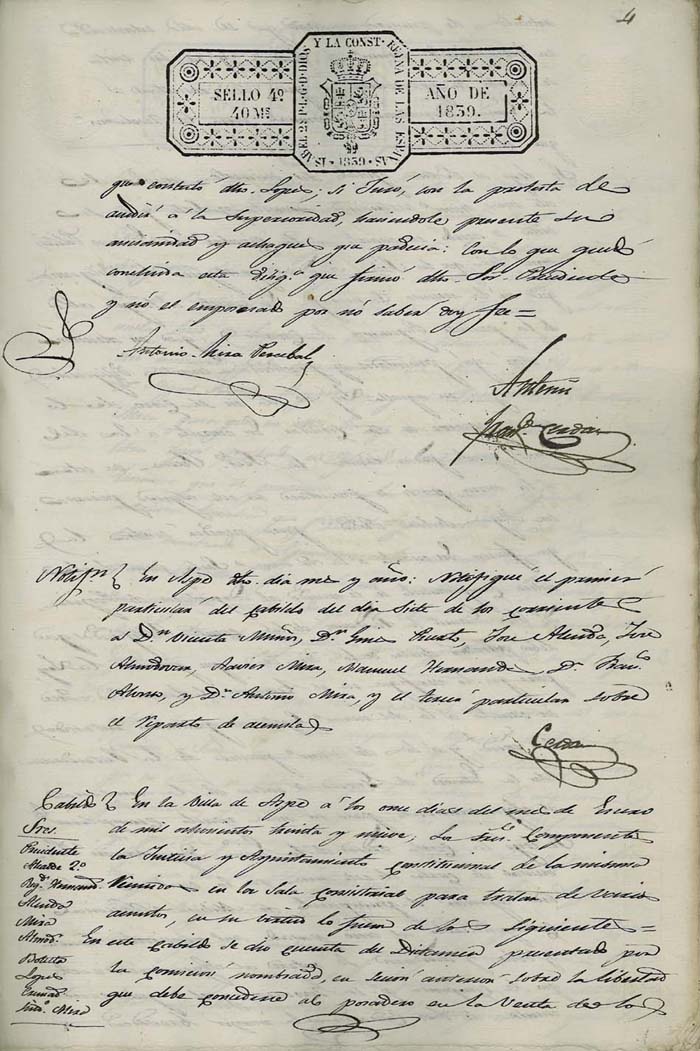 4
ISABEL 2ª P.L.G.D.DIOS Y LA CONST. REINA DE LAS ESPAÑAS
SELLO 4º
40 Ms
AÑO DE
1839.
1839
que contestó dho. Lopes; si Juró, con la protesta de
acudir á la Superioridad, haciendole presente su
ancianidad y achaques que padecia: Con lo que quedó
concluida esta Diligª que firmó dho. Sor. Presidente
y nó el emporado por nó saber doy fee=
Antonio Mira Percebal
Antemi
Franco Cerdan
Notifn En Aspe dho. dia mes y año: Notifiqué el primer
particular del Cabildo del dia Siete de los corrientes
á Dn Vicente Muños, Dn Gines Pueto, Jose Alenda, Jose
Almodovar, Xavier Mira, Manuel Hernandes, Dn Franco
Alonso, y Dn Antonio Mira, y el tercer particular sobre
el reparto de semilas
Cerdan
Cabildo En la Villa de Aspe á los once dias del mes de Enero
Sres. de mil ochocientos treinta y nueve; Los Sres. Componentes
Presidente la Justicia y Ayuntamiento constitucional de la misma
Alcalde 2º
Regr Hernand. Reunidos en la Sala consistorial para tratar de varios
Alenda asuntos, en su vista lo fueron de los siguientes=
Mira
Almodr En este Cabildo se dio cuenta del Dictamen presentado por
Botella la comision nombrada, en sesion anterior sobre la libertad
Lopes
que debe concederse al posadero en la Venta de los
Sindo Mira